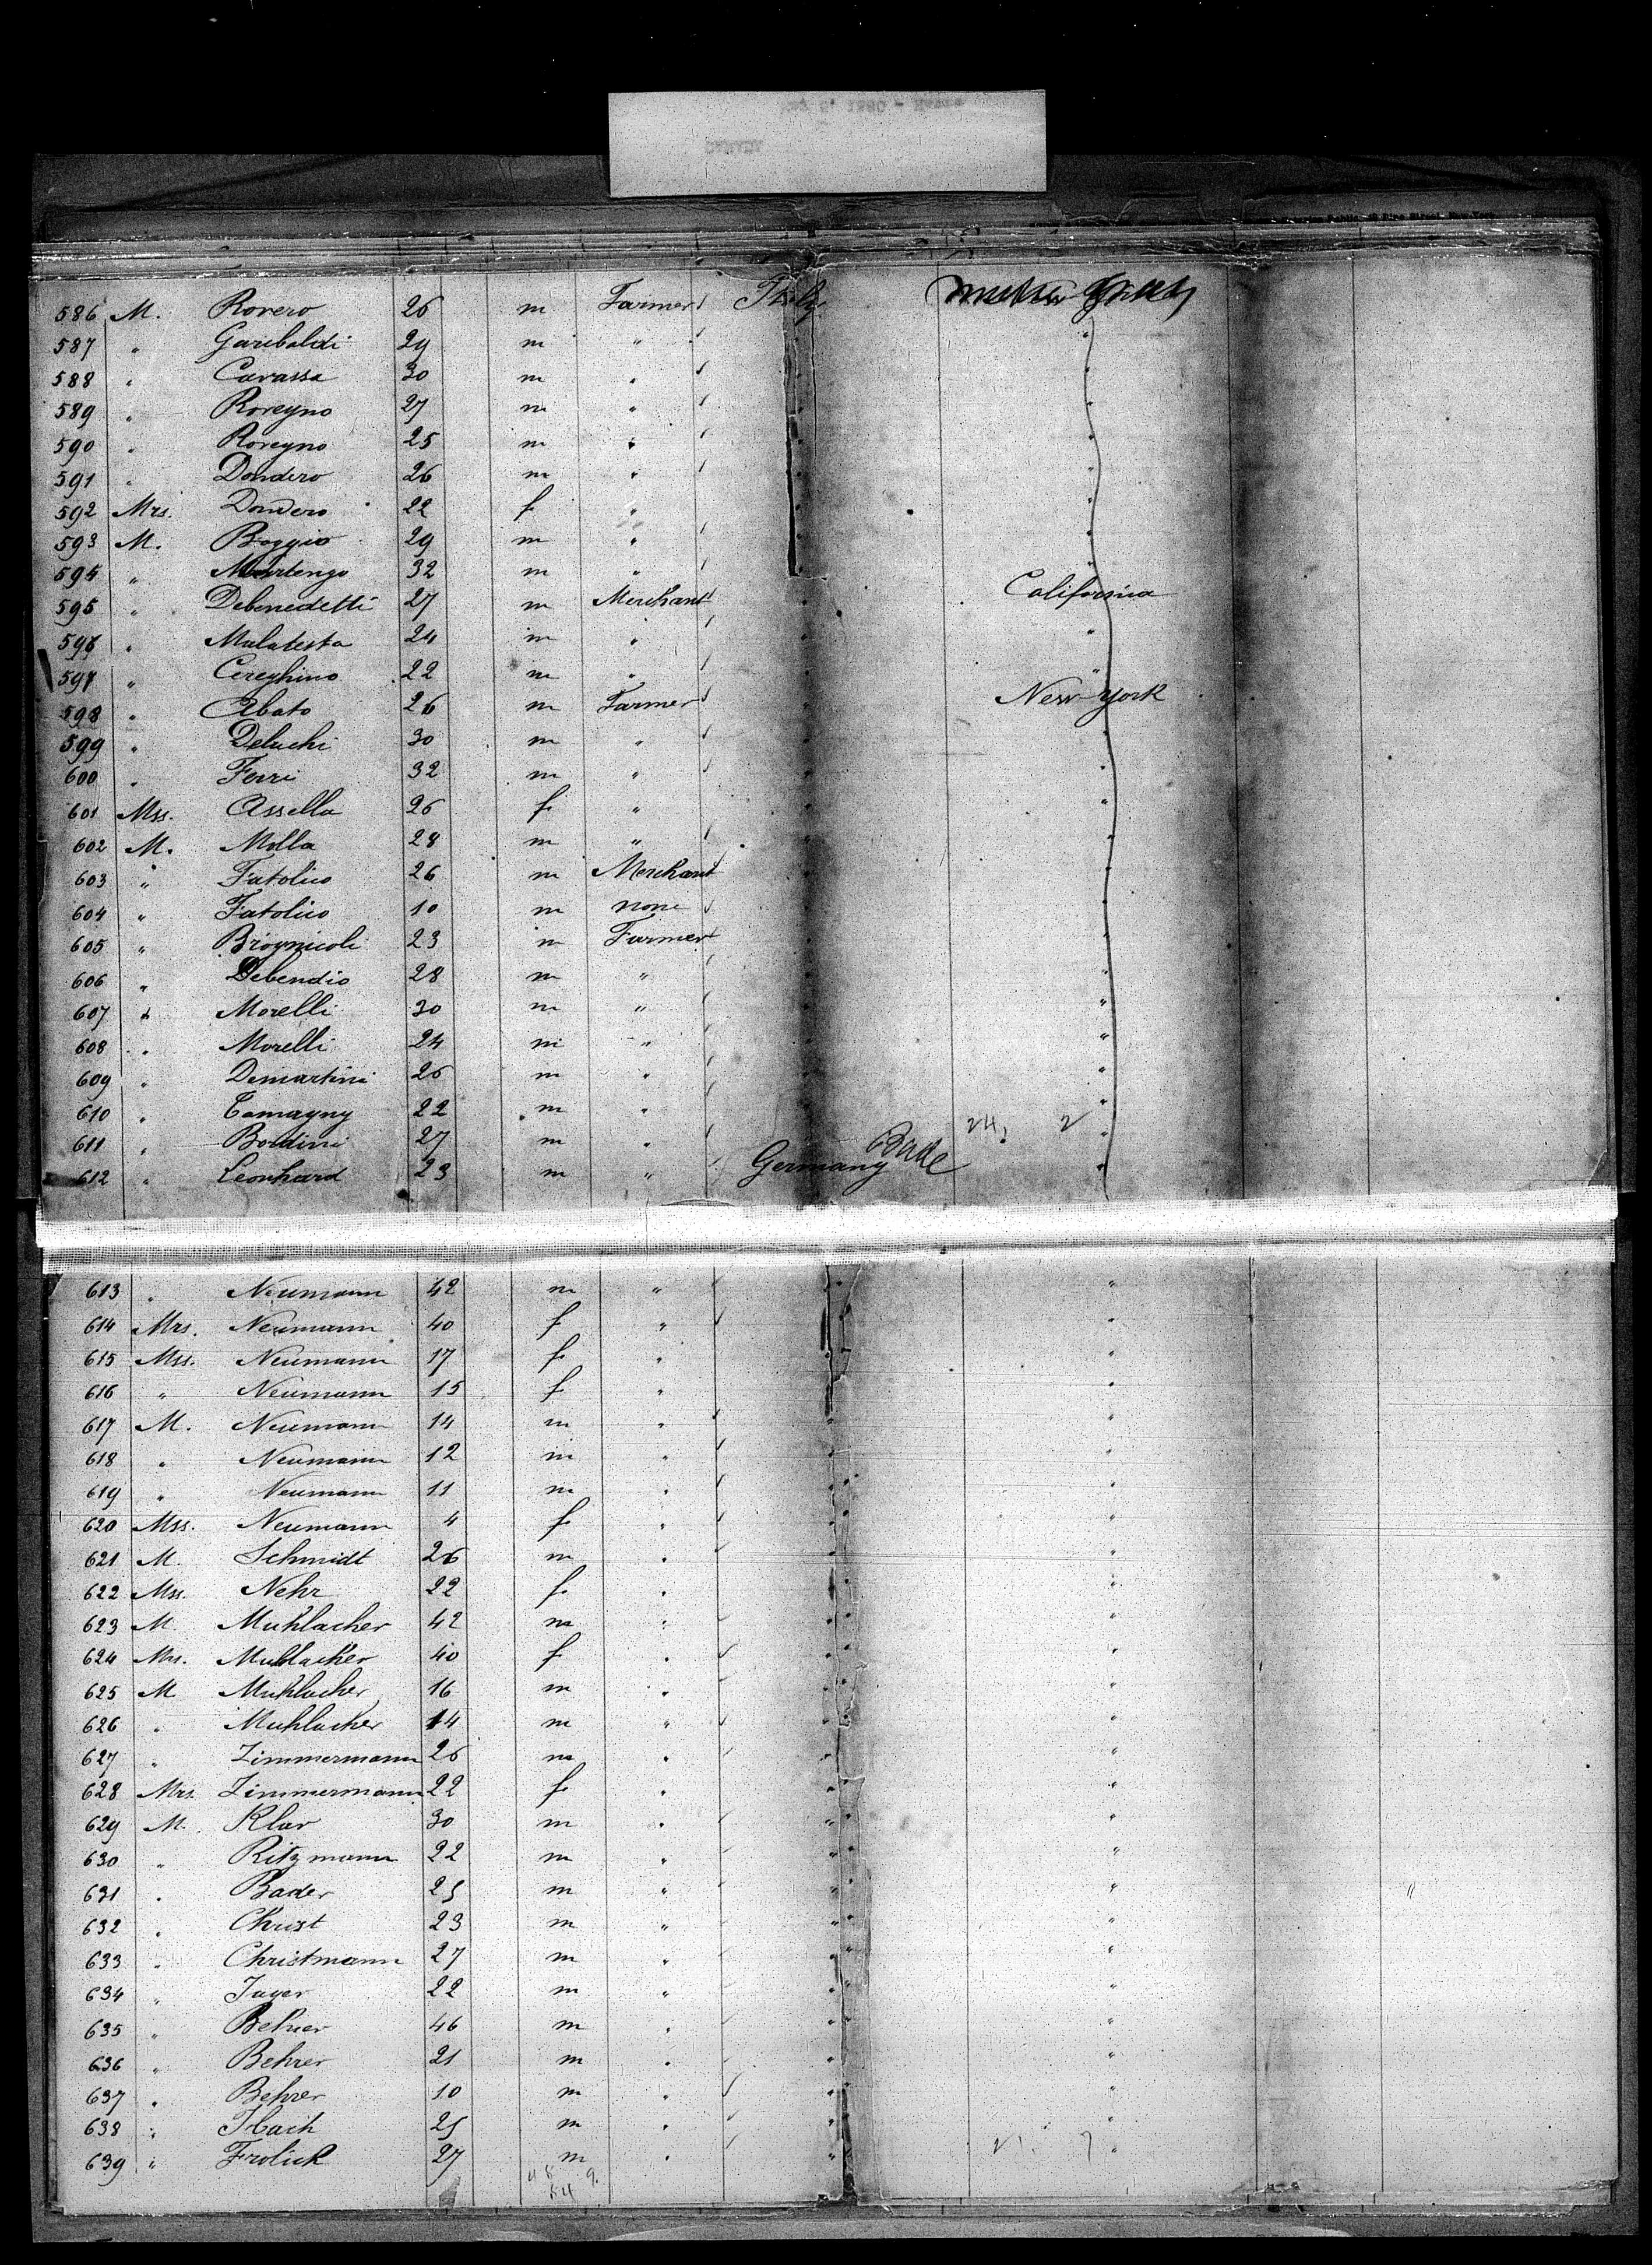 586 M. Rovero 26 m Farmer Italy
587 " Garibaldi 29 m " "
588 " Cavassa 30 m " "
589 " Roregno 27 m " "
590 " Roregno 25 m " "
591 " Dondero 26 m " "
592 Mrs. Dondero 22 f " "
593 M. Boggio 29 m " "
594 " Martengo 32 m " "
595 " Debenedetti 27 m Merchant " California
596 " Malatesta 24 m " " "
597 " Cereghino 22 m " " "
598 " Abato 26 m Farmer " New-York
599 " Deluchi 30 m " " "
600 " Ferri 32 m " " "
601 Mss. Assella 26 f " " "
602 M. Molla 28 m " " "
603 " Fatolico 26 m Merchant " "
604 " Fatolico 10 m none " "
605 " Briognicoli 23 m Farmer " "
606 " Debendio 28 m " " "
607 " Morelli 30 m " " "
608 " Morelli 24 m " " "
609 " Demartini 26 m " " "
610 " Tamagny 22 m " " "
611 " Bordini 27 m " " "
612 " Leonhard 23 m " Germany "
613 " Neumann 42 m " " "
614 Mrs. Neumann 40 f " " "
615 Mss. Neumann 17 f " " "
616 " Neumann 15 f " " "
617 M. Neumann 14 m " " "
618 " Neumann 12 m " " "
619 " Neumann 11 m " " "
620 Mss. Neumann 4 f " " "
621 M. Schmidt 26 m " " "
622 Mss. Nehr 22 f " " "
623 M. Muhlacher 42 m " " "
624 Mrs. Muhlacher 40 f " " "
625 M. Muhlacher 16 m " " "
626 " Muhlacher 14 m " " "
627 " Zimmermann 26 m " " "
628 Mrs. Zimmermann 22 f " " "
629 M. Klar 30 m " " "
630 " Ritzmann 22 m " " "
631 " Bader 25 m " " "
632 " Christ 23 m " " "
633 " Christmann 27 m " " "
634 " Jager 22 m " " "
635 " Behrer 46 m " " "
636 " Behrer 21 m " " "
637 " Behrer 10 m " " "
638 " Ibach 25 m " " "
639 " Frolich 27 m " " "